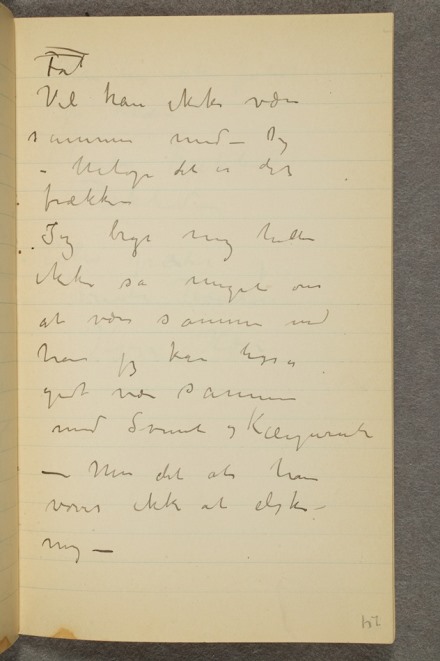 Fat
Vil han ikke være
sammen med – Dig
– Netop det er det
frække
Jeg bryr mig heller
ikke så meget om
at være sammen med
han jeg kan ligeså
godt være sammen
med Svend og
— Men det at han
vover ikke at elske
mig —